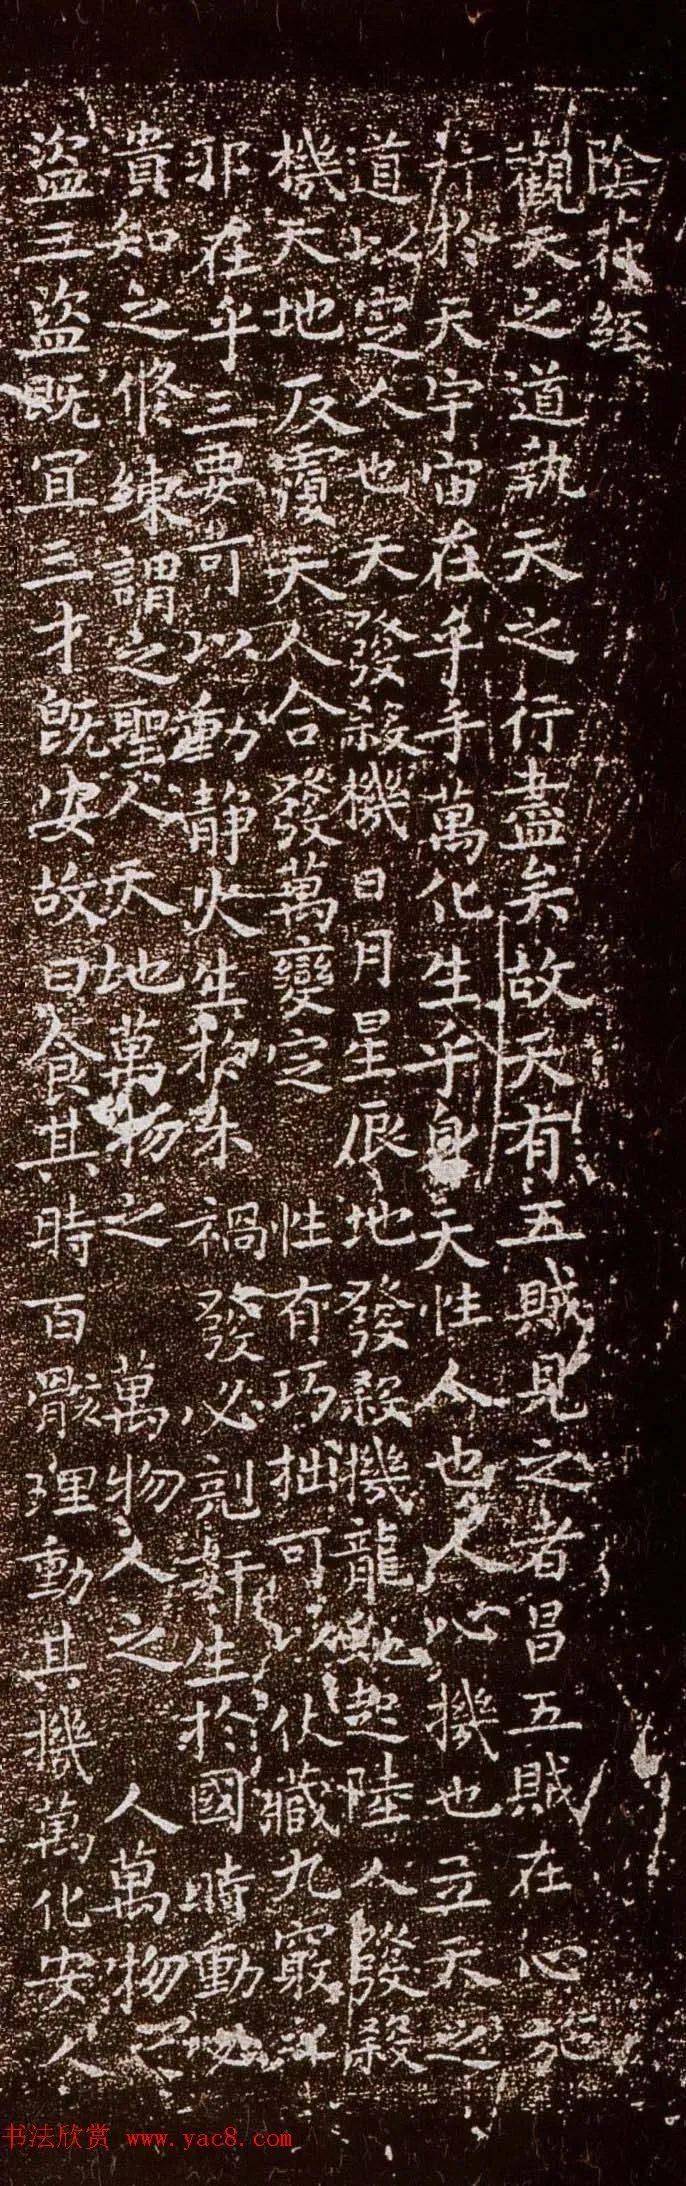 陰符經
觀天之道執天之行盡矣故天有五賊見之者昌五賊在心施
行於天宇宙在乎手萬化生乎身天性人也人心機也立天之
道以定人也天發殺機日月星辰地發殺機龍虵起陸人發殺
機天地反覆天人合發萬變定性有巧拙可以伏藏九竅之
邪在乎三要可以動靜火生於木禍發必剋姧生於國時動必
貴知之修練謂之聖人天地萬物之萬物人之人萬物之
盜三盜既宜三才既安故曰食其時百骸理動其機萬化安人
书法欣赏 www.yac8.com